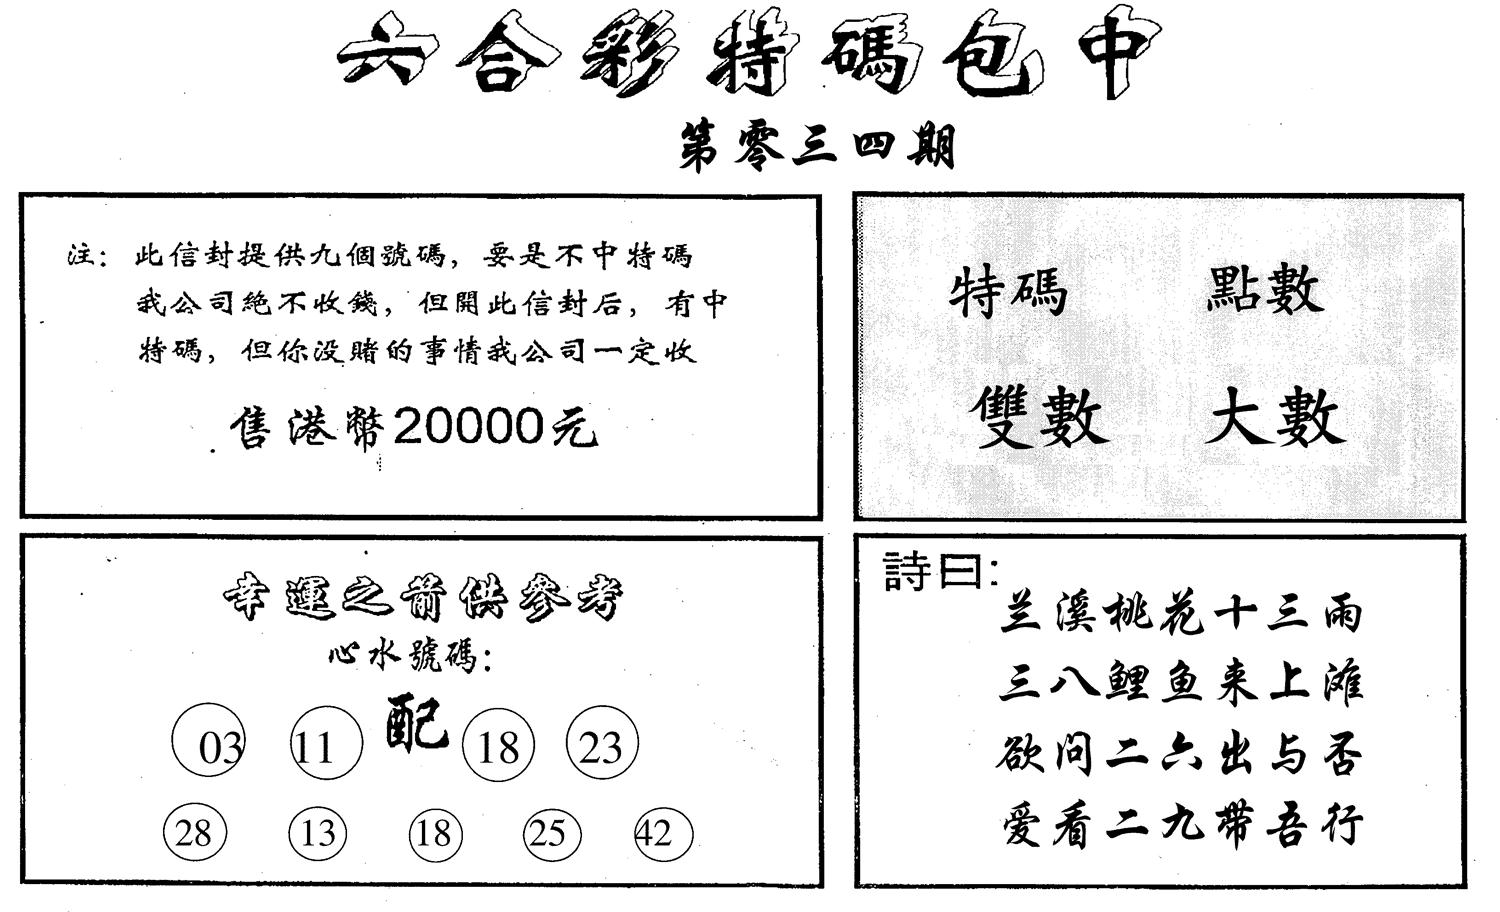 六合彩特碼包中
第零三四期
注：此信封提供九個號碼，要是不中特碼
我公司絶不收錢，但開此信封后，有中
特碼，但你没賭的事情我公司一定收
售港幣20000元
特碼 點數
雙數 大數
幸運之箭供參考
心水號碼：
03 11 配 18 23
28 13 18 25 42
詩曰：
兰溪桃花十三雨
三八鲤鱼来上滩
欲问二六出与否
爱看二九帶吾行